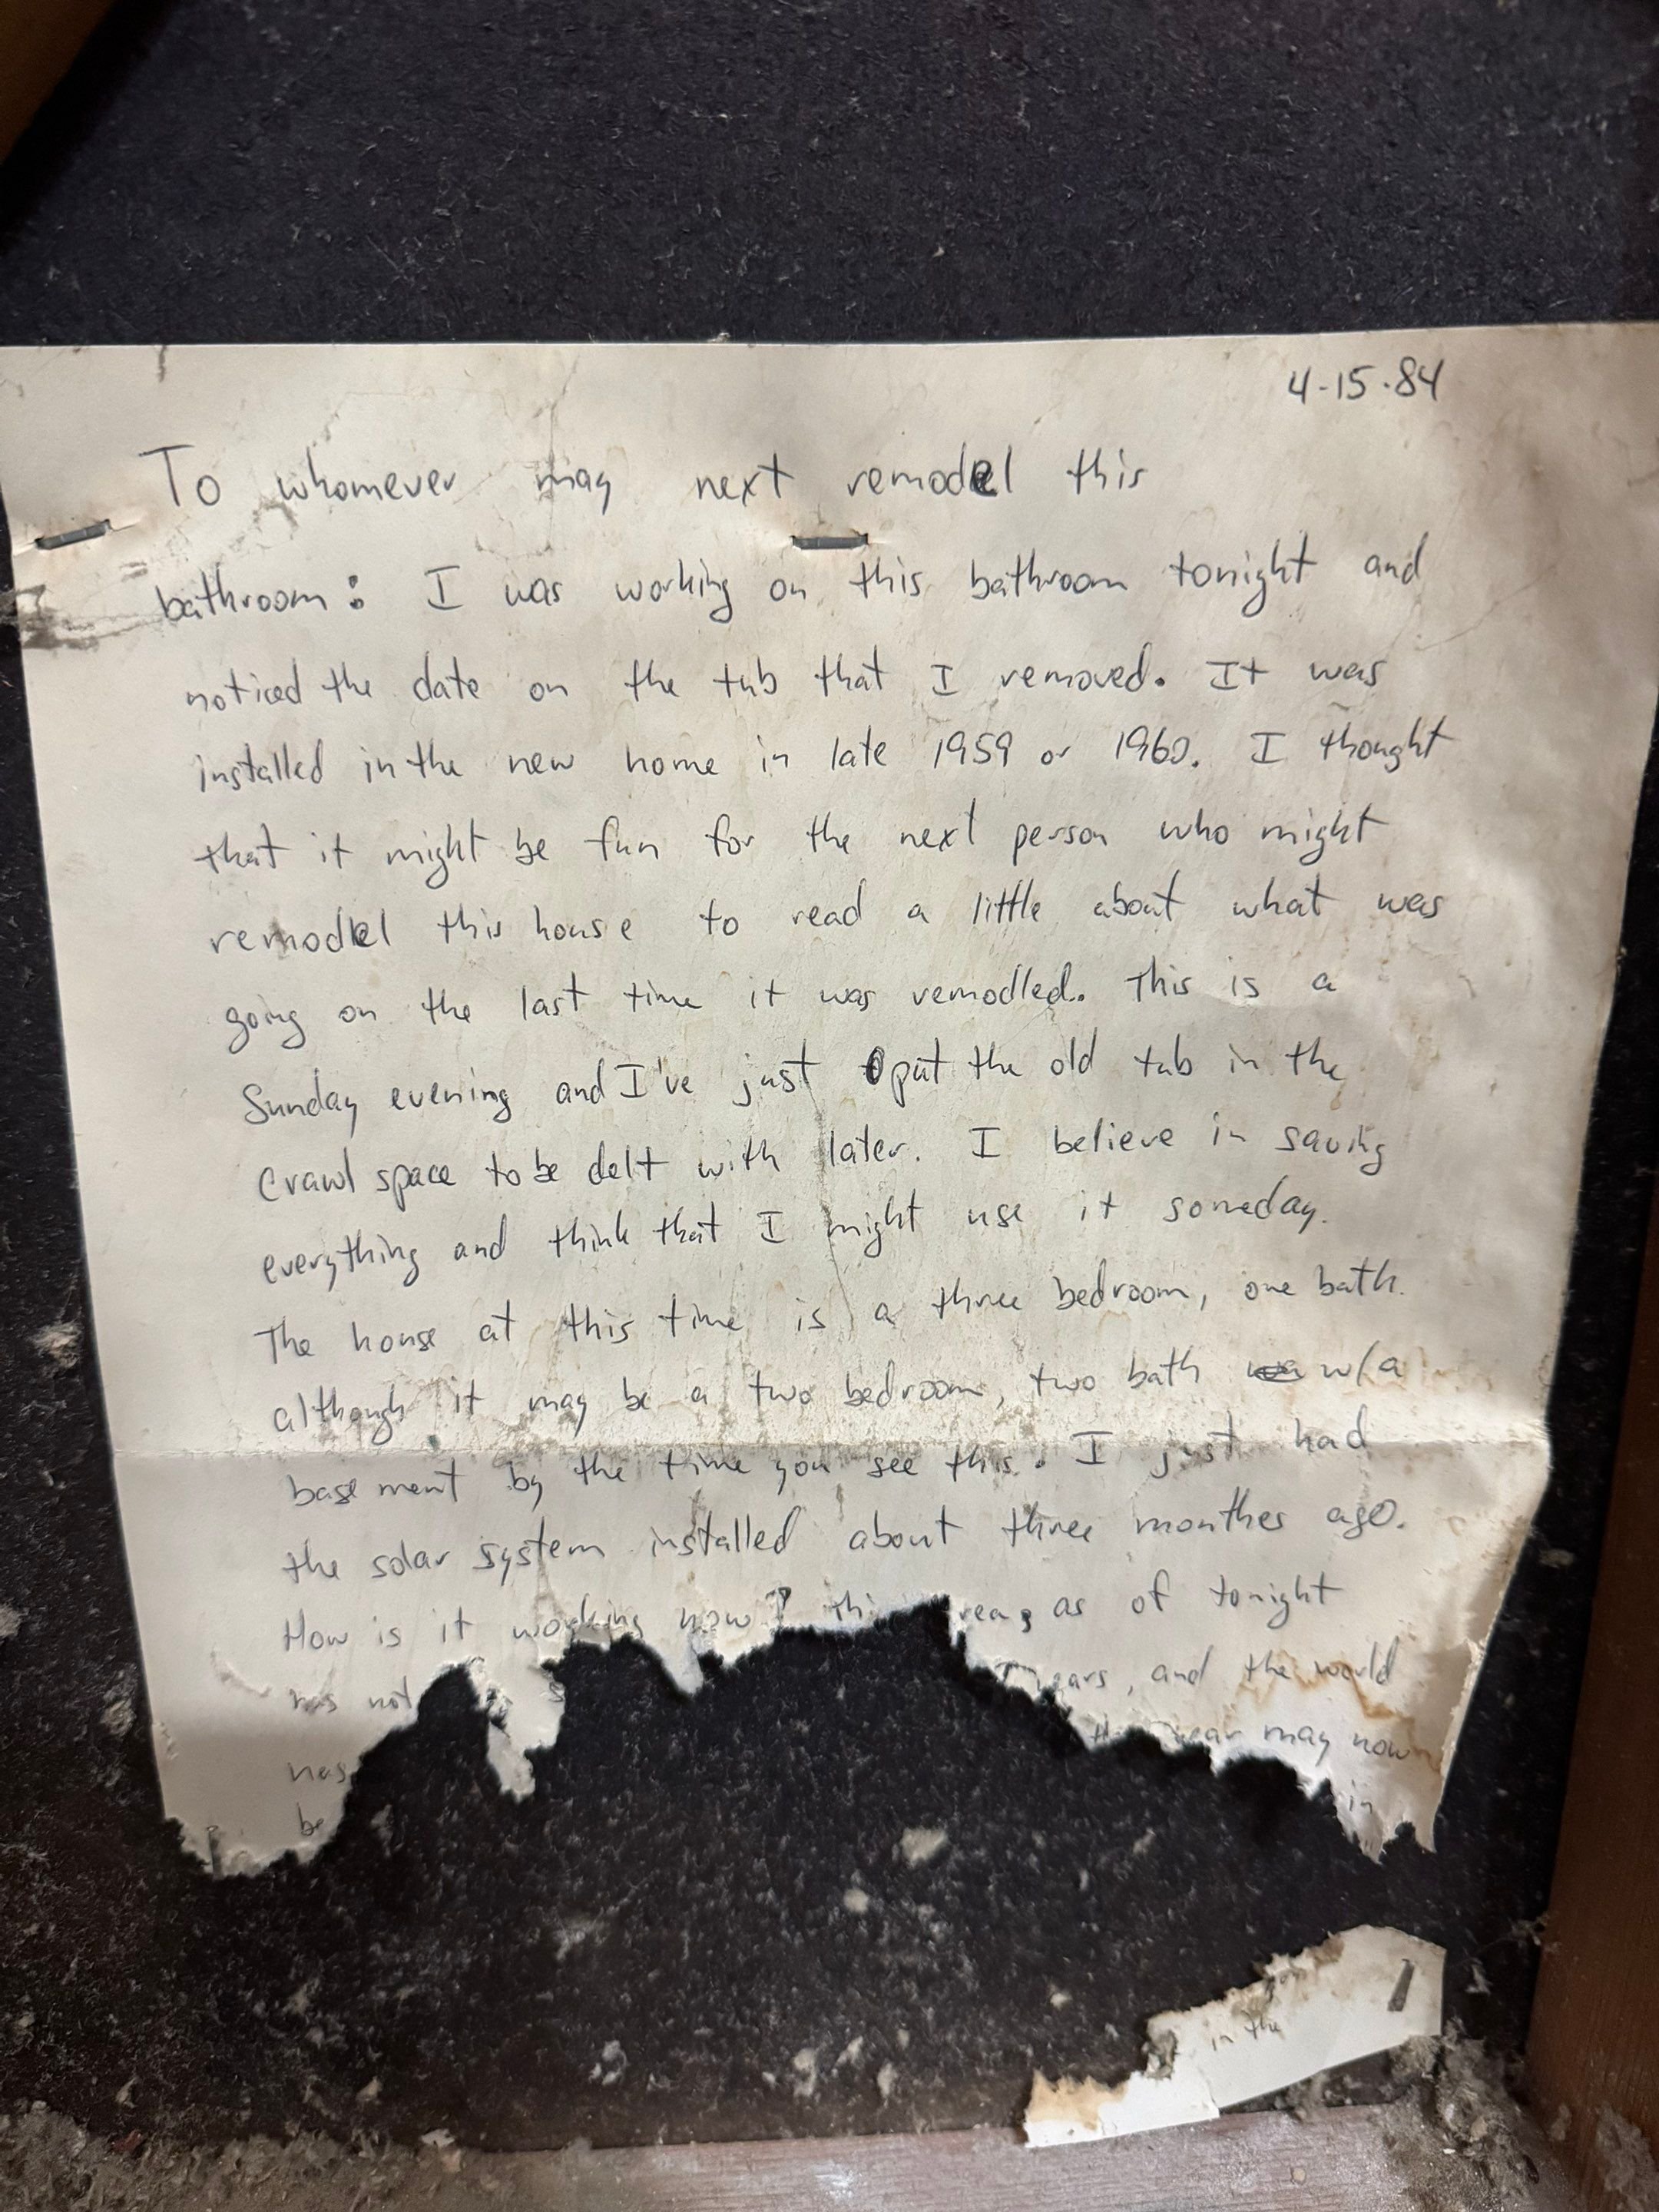 4-15-84
To whomever may next remodel this
bathroom: I was working on this bathroom tonight and
noticed the date on the tub that I removed. It was
installed in the new home in late 1959 or 1960. I thought
that it might be fun for the next person who might
remodel this house to read a little about what was
going on the last time it was remodled. This is a
Sunday evening and I've just put the old tub in the
crawl space to be delt with later. I believe in saving
everything and think that I might use it someday.
The house at this time is a three bedroom, one bath.
although it may be a two bedroom, two bath w/a
basement by the time you see this. I just had
the solar system installed about three monthes ago.
How is it working now? as of tonight
has not years, and the world
has year may now
be in
in the